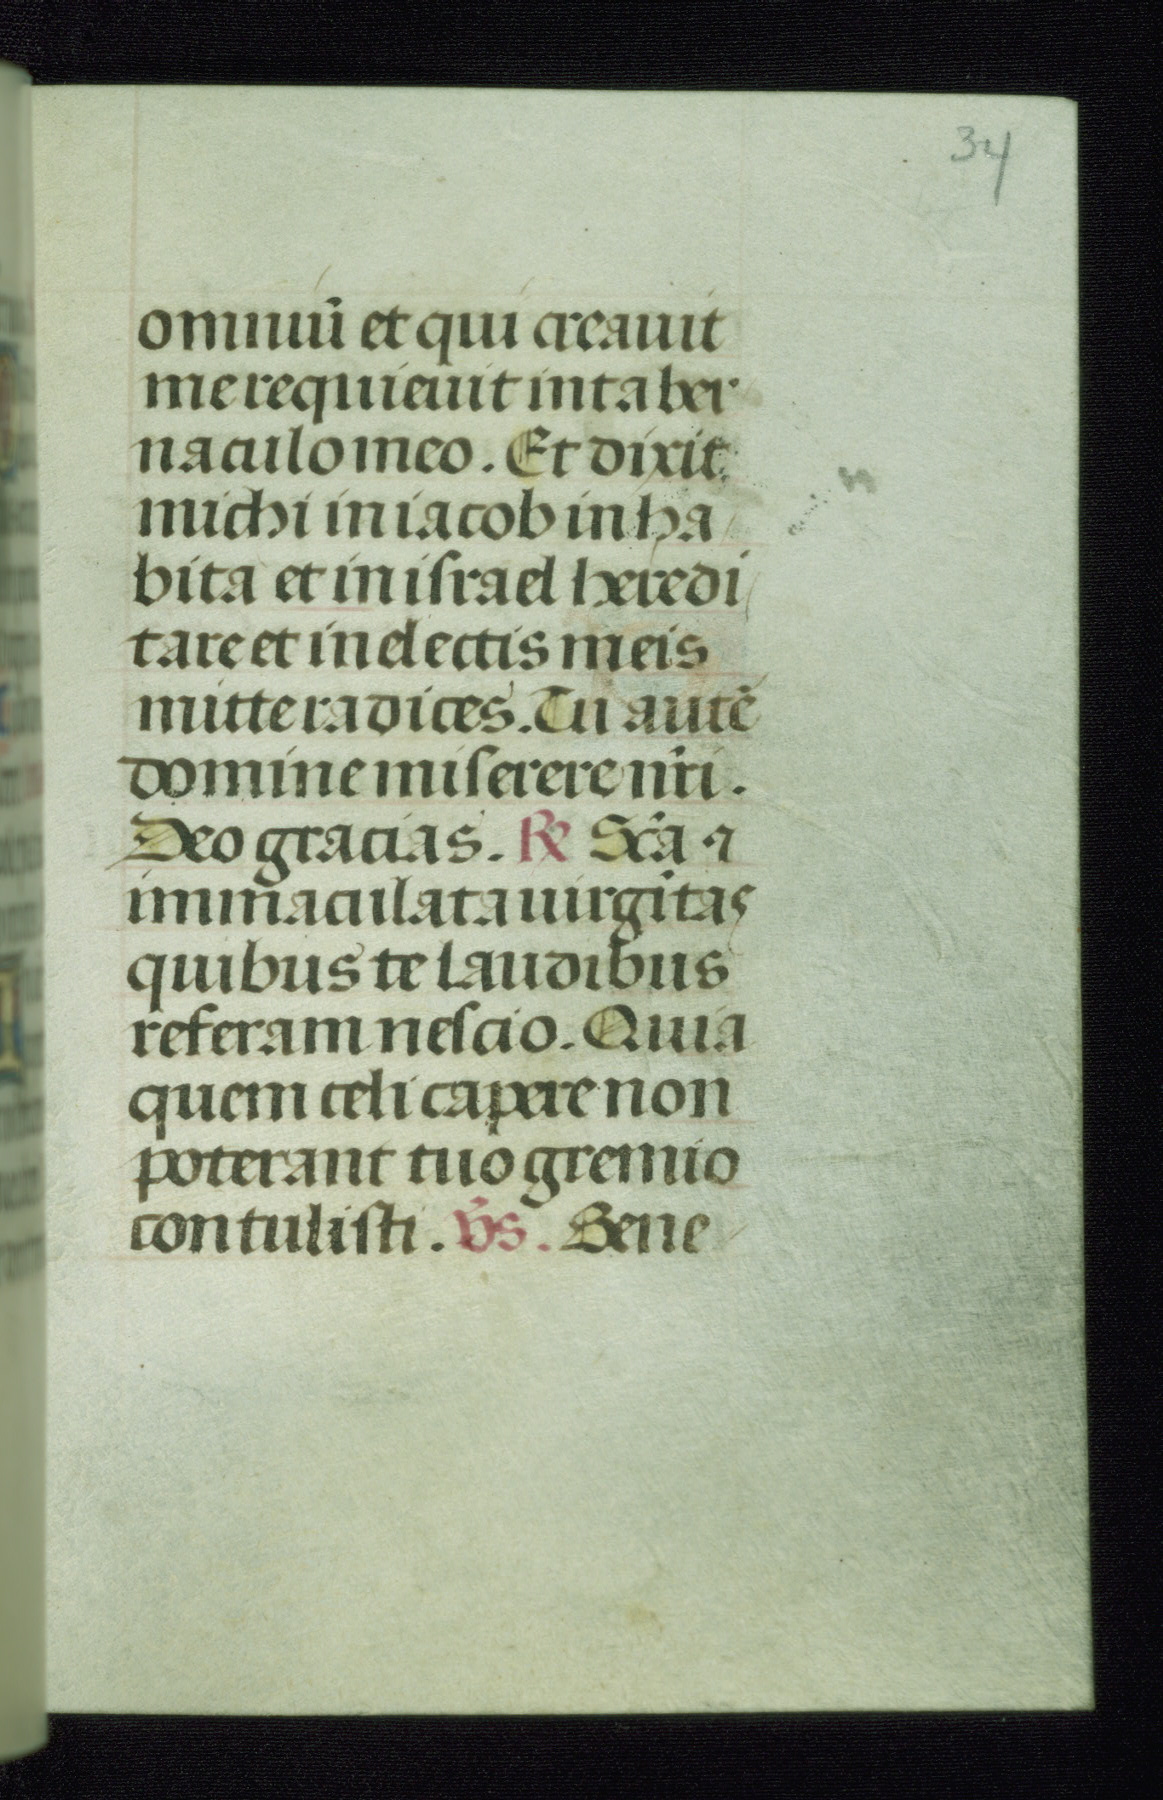 34
omniuū et qui creauit
me requieuit in taber
naculo meo. Et dixit
michi in iacob inha
bita et in iſrael heredi
tare et in electis meis
mitte radices. Tu autē
domine miſerere nr̄i.
Deo gracias. ℟ Sc̄a ⁊
immaculata uirgītas
quibus te laudibus
referam neſcio. Quia
quem celi capere non
poterant tuo gremio
contuliſti. v̄s. Bene